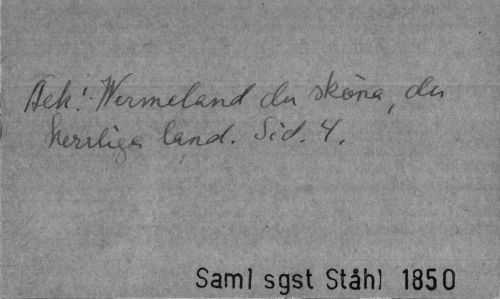 Ack! Wermeland du sköna, du
herrliga land. Sid. 4.
Saml sgst Ståhl 1850